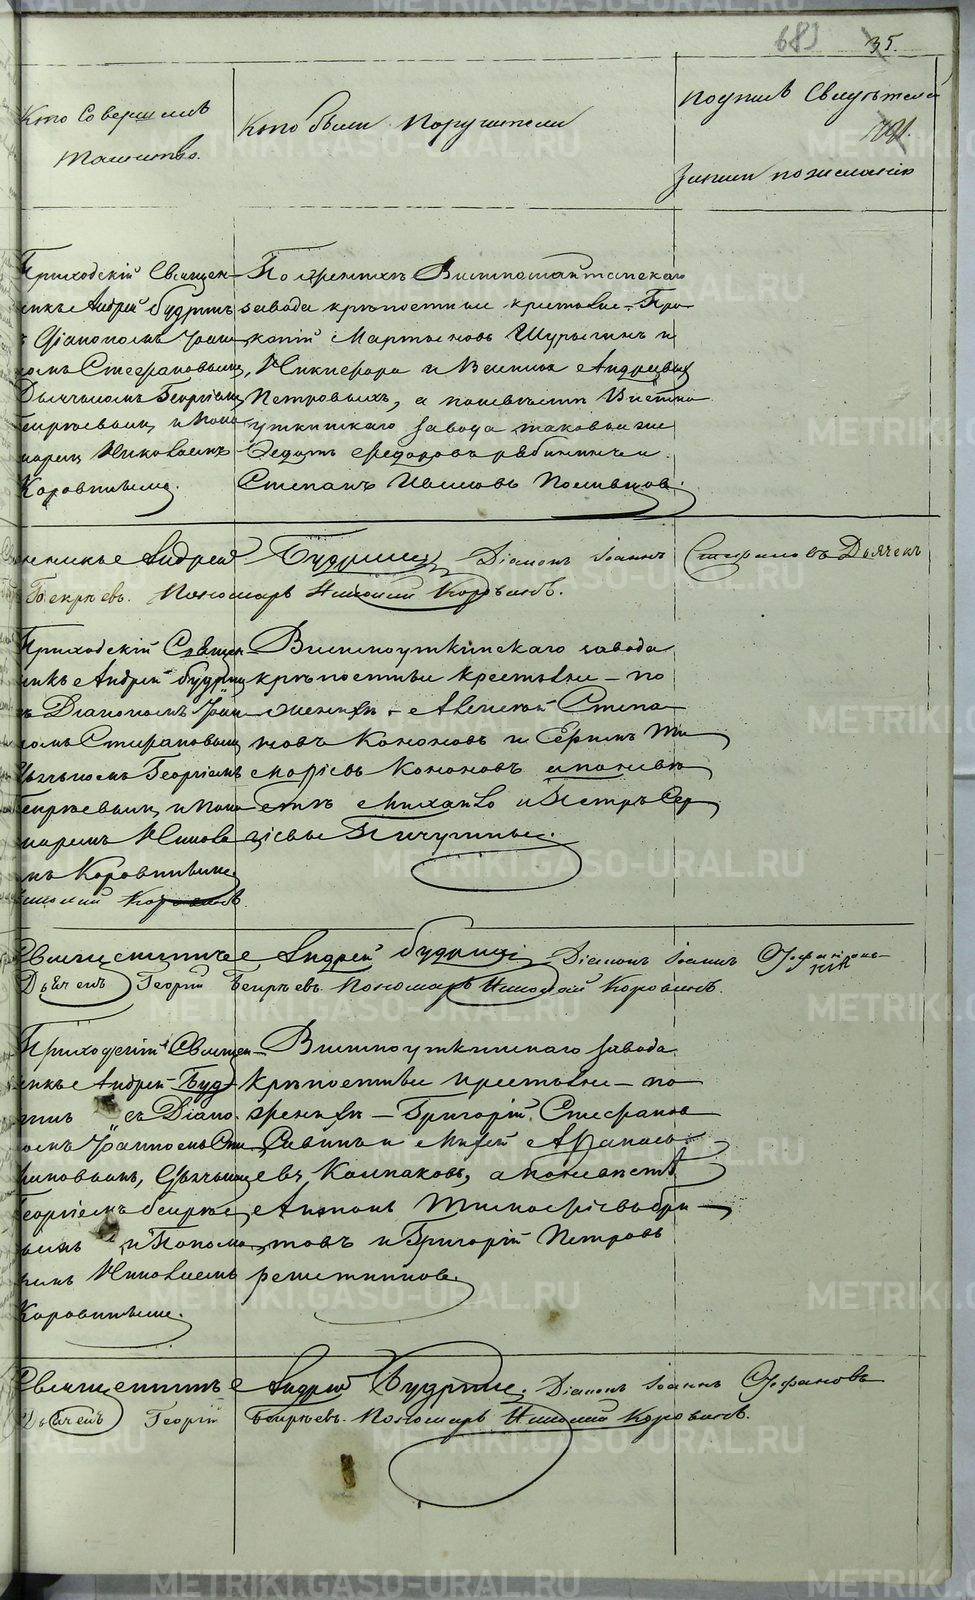 683 35.
Кто совершилъ
таинство.
Кто были поручители
подпись свидѣтелей
записи по желанію
Приходскій Священ-
никъ Андрей Будринъ
Діакономъ Іоан-
номъ Стефановымъ
Дьячкомъ Георгіемъ
и поно-
маремъ Николаемъ
Коровинымъ.
По женихѣ Висимошайтанскаго
завода крѣпостные крестьяне Про-
копій Мартыновъ Шурыгинъ и
Никифоръ и Андреевы
Петровыхъ, а по невѣстѣ Висимо
уткинскаго завода таковые же
Федотъ Федоровъ Рябининъ и
Степанъ Ивановъ Поливановъ.
Андрей Будринъ Діаконъ Іоаннъ Стефановъ Дьячекъ
Пономарь Николай Коровинъ.
Приходскій Священ-
никъ Андрей Будринъ
съ Діакономъ Іоан-
номъ Стефановымъ
Дьячкомъ Георгіемъ
и поно-
маремъ Никола-
емъ Коровинымъ
Николай Коровинъ
Висимоуткинскаго завода
крѣпостные крестьяне по
женихѣ Алексѣй Степа-
новъ Кононовъ и Ефимъ Ти-
мофѣевъ Кононовъ а по невѣ-
стѣ Михайло и Петръ Сер-
гѣевы Пичугины.
Священникъ Андрей Будринъ Діаконъ Іоаннъ
Дьячекъ Георгій Пономарь Николай Коровинъ.
Приходскій Священ-
никъ Андрей Буд-
ринъ съ Діако-
номъ Іоанномъ Сте-
фановымъ, Дьячкомъ
Георгіемъ
и Понома-
ремъ Николаемъ
Коровинымъ.
Висимоуткинскаго завода
крѣпостные крестьяне по
женихѣ Григорій Стефановъ
Савинъ и Афанась-
евъ Колпаковъ, а по невѣстѣ
Антонъ Тимофѣевъ
и Григорій Петровъ
Решетниковъ.
Священникъ Андрей Будринъ. Діаконъ Іоаннъ Стефановъ
Дьячекъ Георгій Пономарь Николай Коровинъ.
METRIKI.GASO-URAL.RU